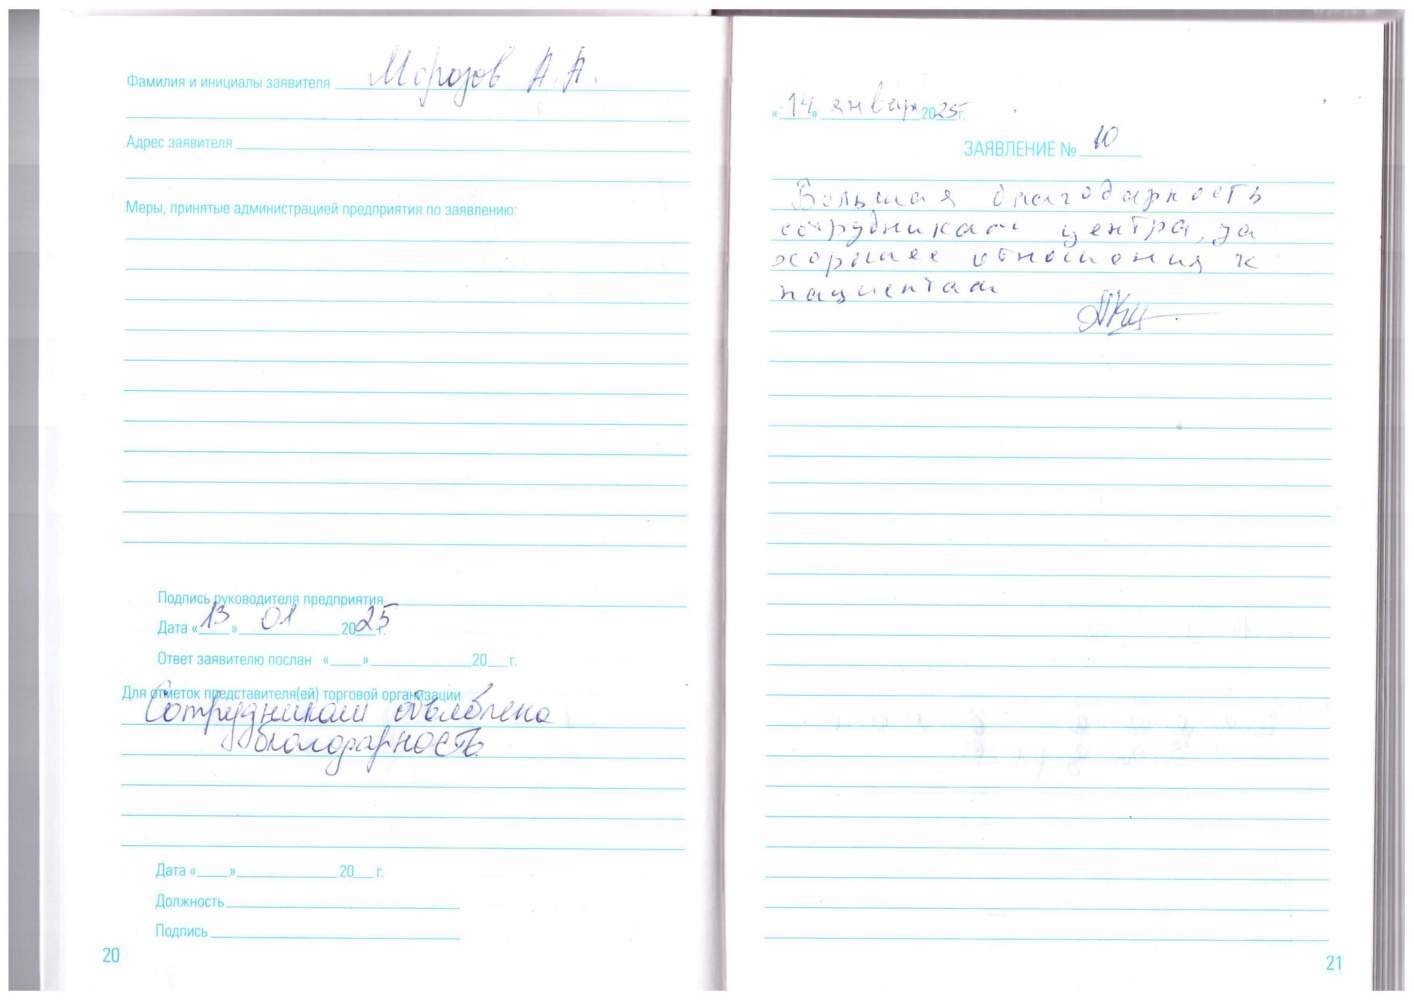 Фамилия и инициалы заявителя Морозов А.А.
Адрес заявителя
Меры, принятые администрацией предприятия по заявлению:
Подпись руководителя предприятия
Дата «13» 01 2025 г.
Ответ заявителю послан «___»___________20___г.
Для отметок представителя(ей) торговой организации
Сотрудникам объявлена
благодарность
Дата «___»___________20___г.
Должность
Подпись
20
«14» января 2025г.
ЗАЯВЛЕНИЕ № 10
Большая благодарность
сотрудникам центра, за
хорошее отношения к
пациентам
21